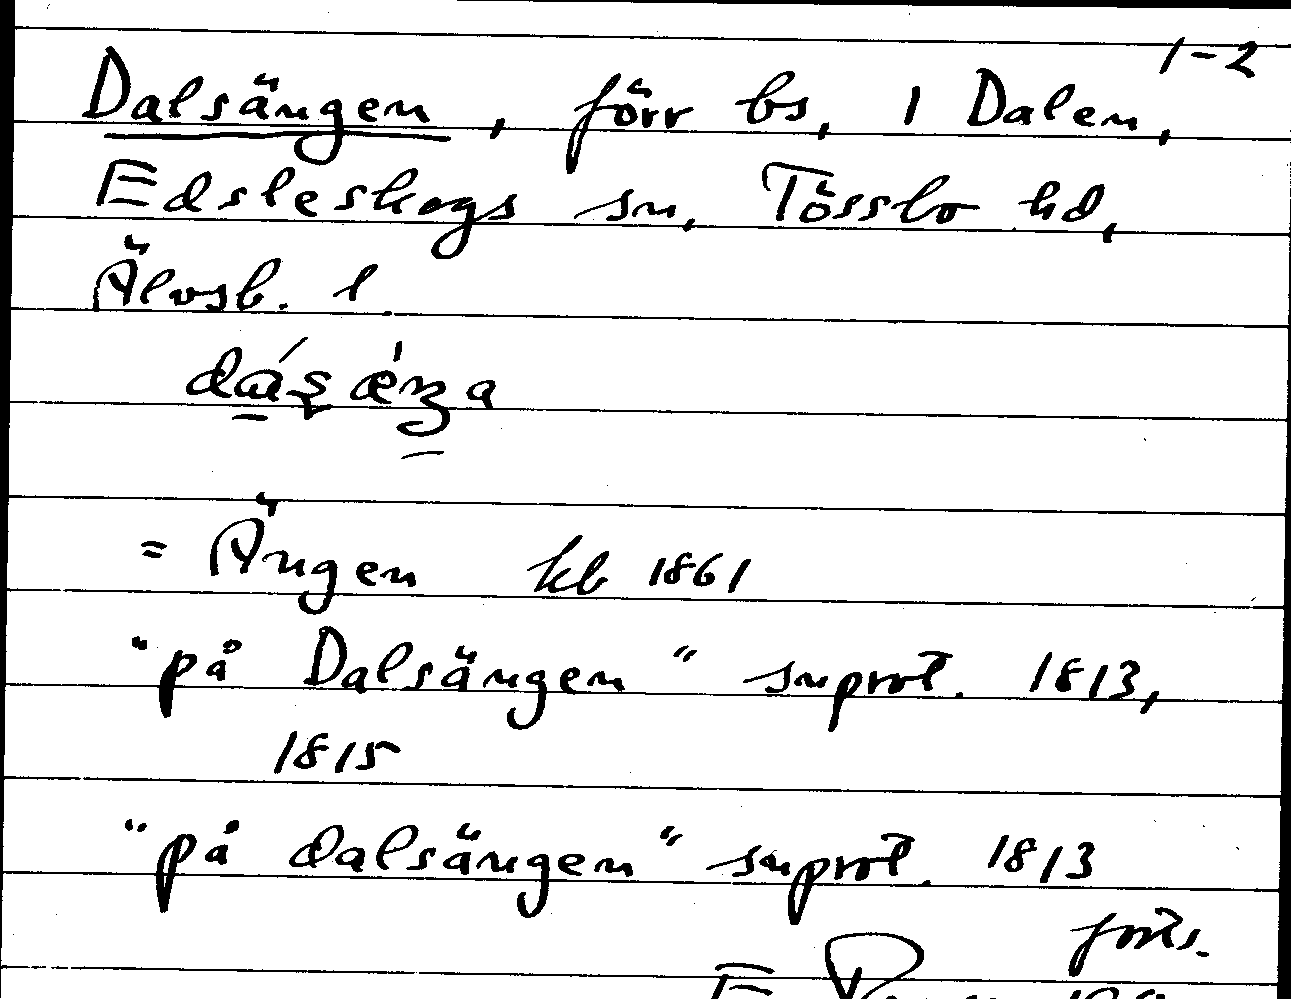 1-2
Dalsängen, förr bs, 1 Dalen,
Edsleskogs sn, Tössbo hd,
Älvsb. l.
= Ängen kb 1861
"på Dalsängen" snprot. 1813,
1815
"på dalsängen" snprot. 1813
forts.